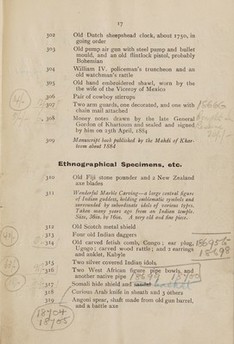 17
302 Old Dutch sheepshead clock, about 1750, in
going order
303 Old pump air gun with steel pump and bullet
mould, and an old flintlock pistol, probably
Bohemian
304 William IV. policeman's truncheon and an
old watchman's rattle
305 Hand back scratcher and shield, worn by the
the wife of the Viceroy of Mexico
306 Pair of cowboy stirrups
307 Two arm guards, one decorated, and one with
chain mail attached
308 Money notes drawn by the late General
Gordon of Khartoum and sealed and signed
by him on 25th April, 1884
309 Manuscript book published by the Mahdi of Khar-
toum about 1884
Ethnographical Specimens, etc.
310 Old Fiji stone pounder and 2 New Zealand
axe blades
311 Wonderful Marble Carving—a large central figure
of Indian goddess, holding emblematic symbols and
surrounded by subordinate idols of various types.
Taken many years ago from an Indian temple.
Size, 36in. by 16in. A very old and fine piece.
312 Old Scotch metal shield
313 Four old Indian daggers
314 Old carved fetish comb, Congo; ear plug,
Ugogo; carved wood rattle; and 2 earrings
and anklet, Kabyle
315 Two silver covered Indian idols
316 Two West African figure pipe bowls, and
another native pipe
317 Somali hide shield and
318 Curious Arab knife in sheath and 3 others
319 Angoni spear, shaft made from old gun barrel,
and a battle axe
18704
18705